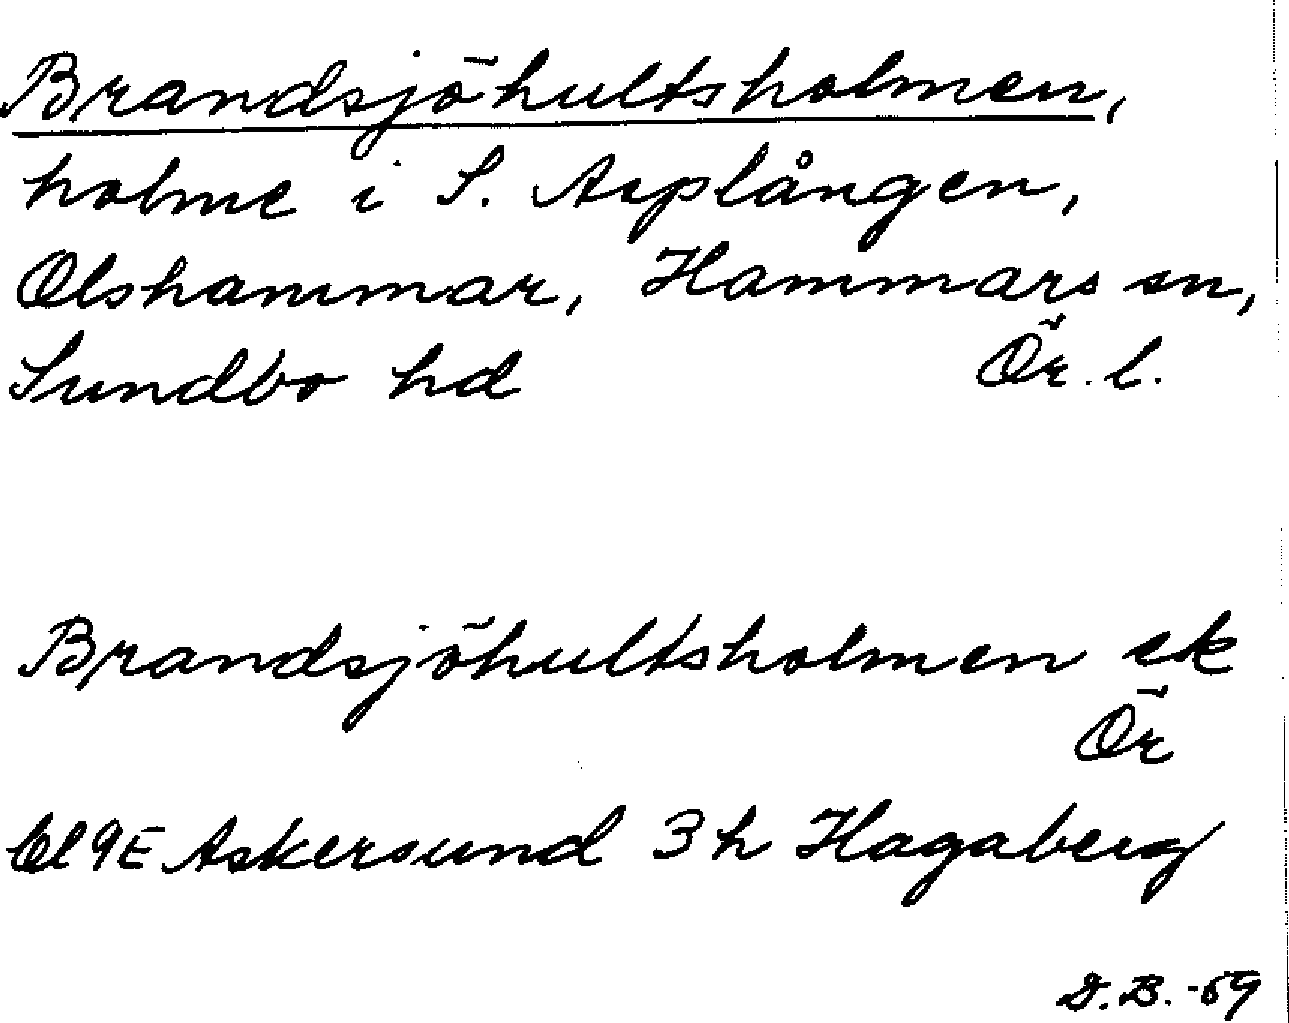 Brandsjöhultsholmen,
holme i S. Asplången,
Olshammar, Hammars sn,
Sundbo hd Ör. l.
Brandsjöhultsholmen ek
Ör
bl 9E Askersund 3h Hagaberg
D.B. -69